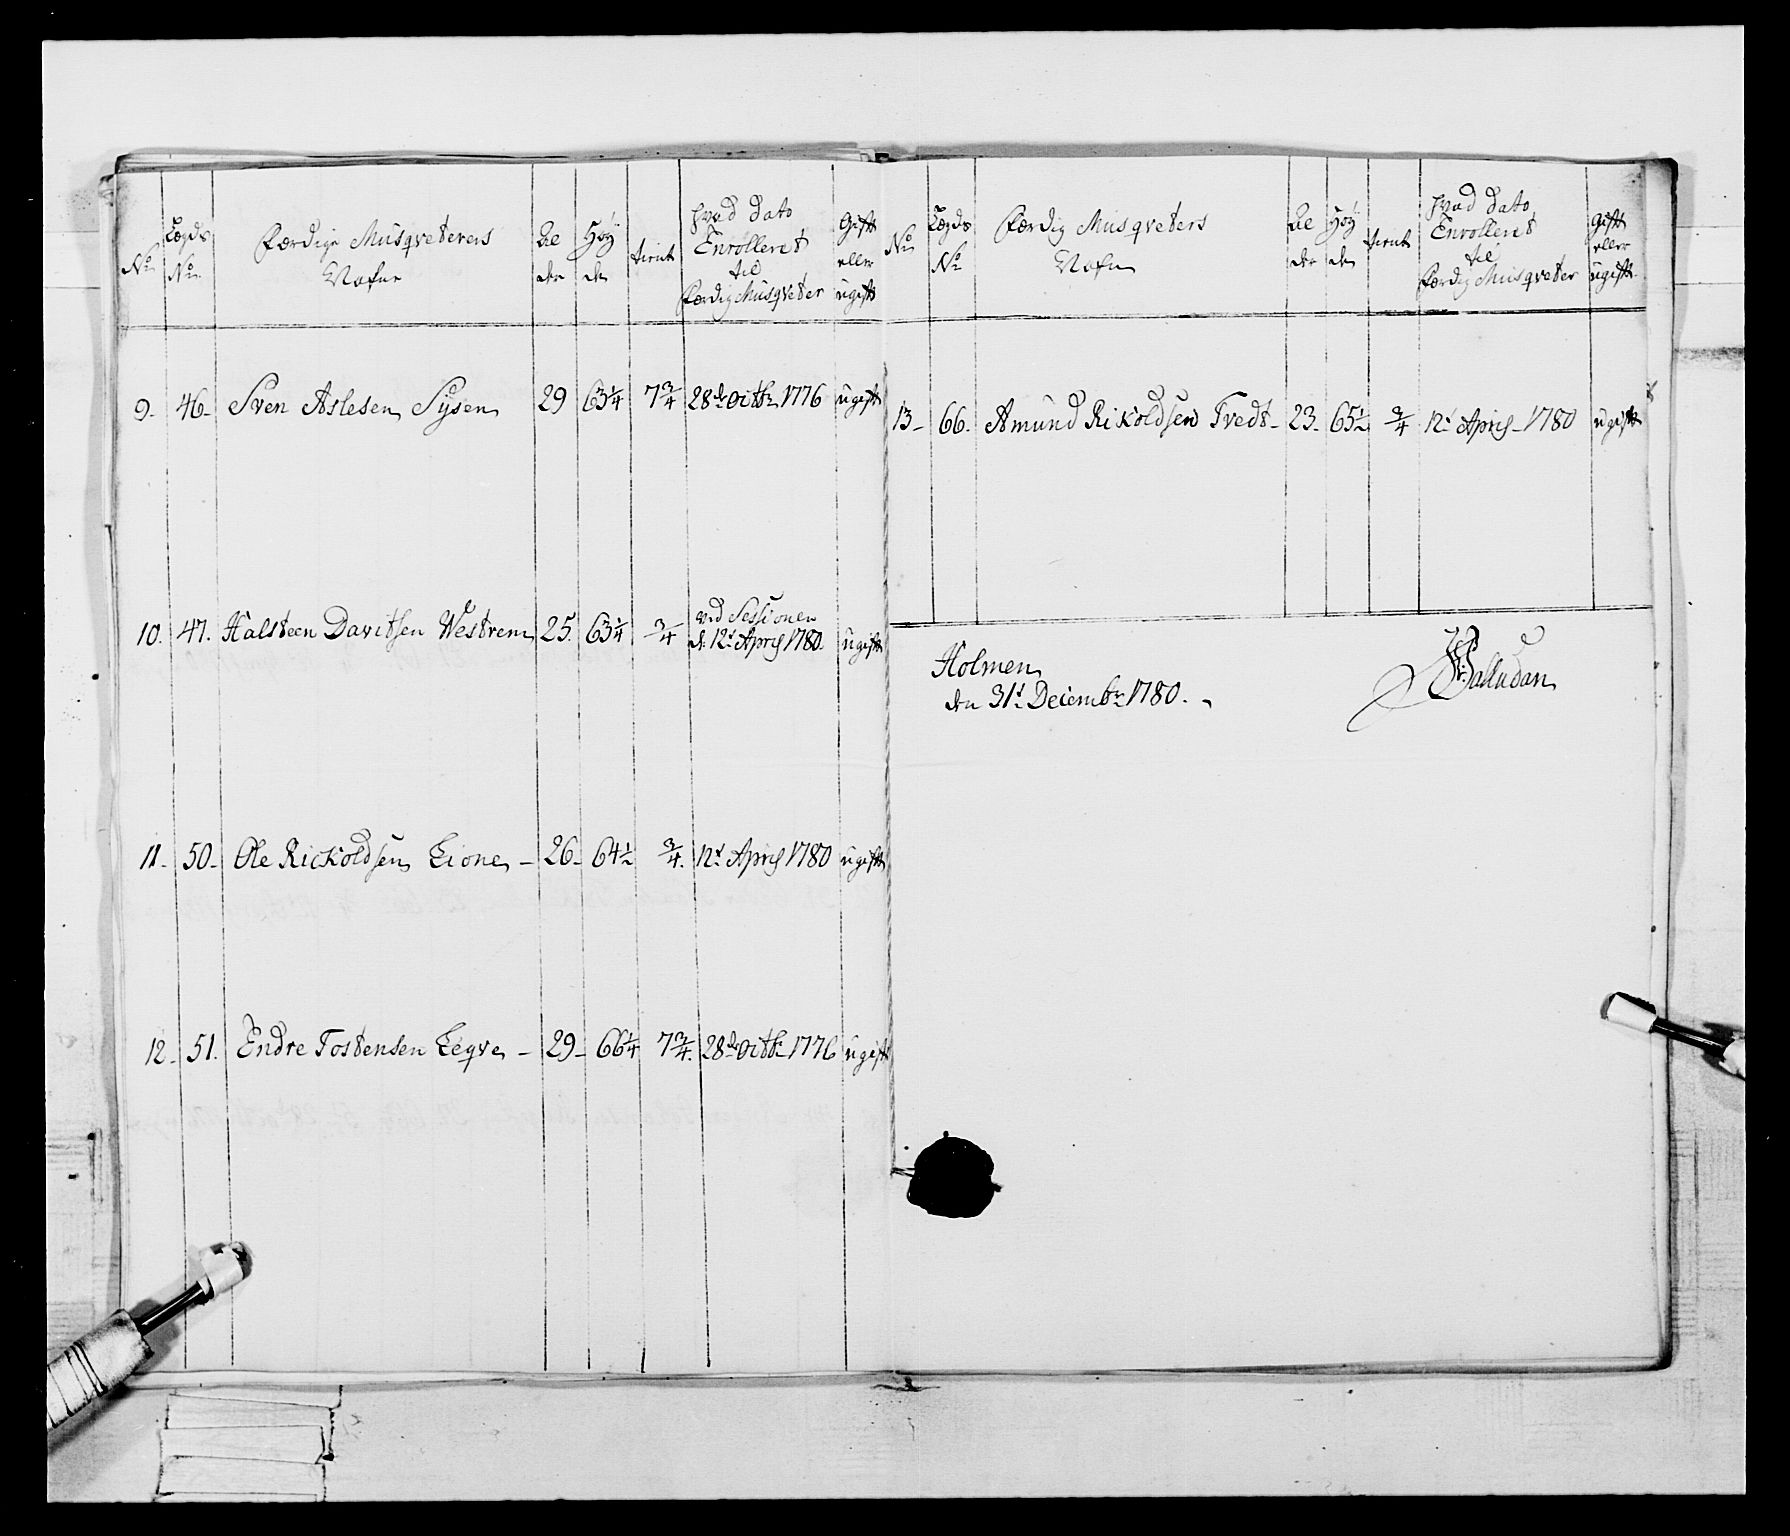 No
Lægds
No
Færdige Musqveterers
Nafne
Al
der
Høy
de
tient
hvad dato
Enrolleret
til
færdig Musqveter
Gift
eller
ugift
9- 46- Sven Aslesen Sysen 29 63¼ 7¾ 28de Octbr 1776 ugift
10. 47. Halsteen Davitsen Westrem 25. 63¼ ¾ ved Sessionen
d: 12t April 1780. ugift
11- 50- Ole Rickoldsen Lione - 26- 64½ ¾. 12t April 1780 ugift
12- 51. Endre Tostensen Legve - 29- 66¼ 7¾. 28de Octbr 1776 ugift
No
Lægds
No
Færdig Musqveters
Nafn
Al
der
Høy
de
tient
hvad dato
Enrolleret
til
færdig Musqveter
Gift
eller
ugift
13- 66. Amund Rikoldsen Tvedt- 23- 65½ ¾ 12t April- 1780 ugift
Holmen
den 31t Decembr 1780.
Palludan